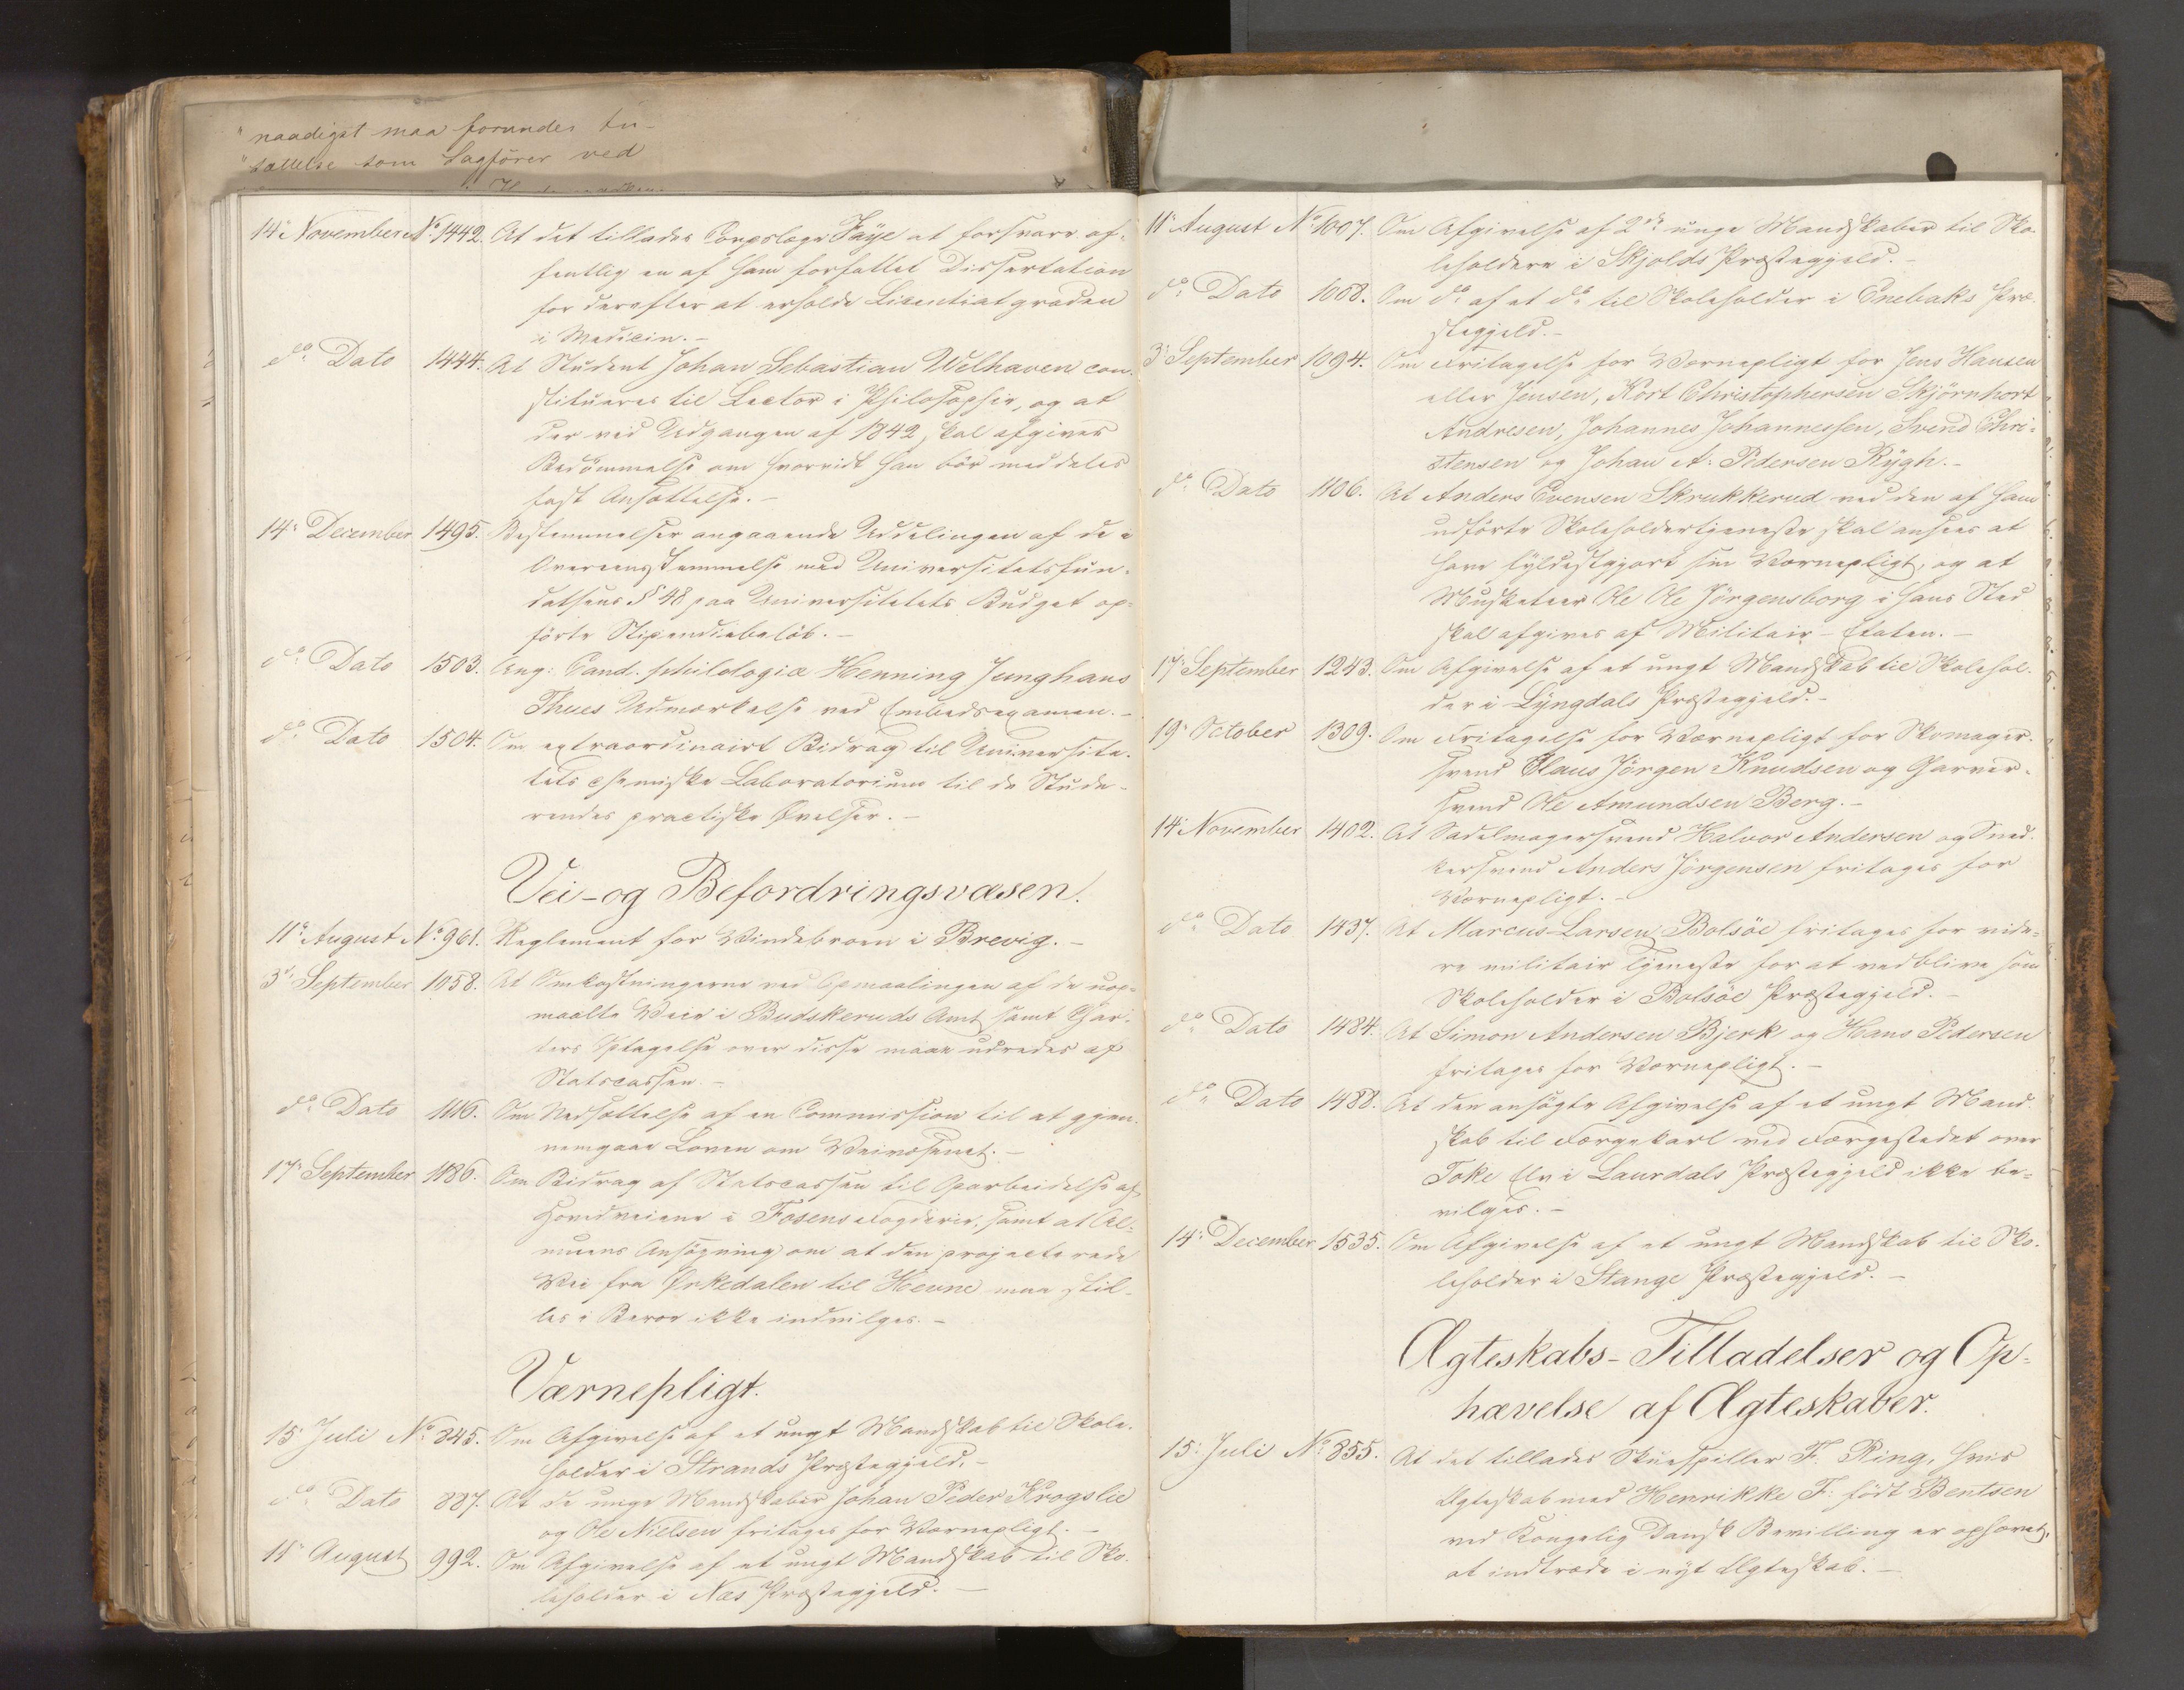 "naadigst maa forundes An-
"sættelse som Sagfører ved
14de November No. 1442. At det tillades Corpslæge Faÿe at forsvare of-
fentlig en af ham forfattet Dissertation
for derefter at erholde Licentiatgraden
i Medicin. -
do. Dato 1444. At Student Johan Sebastian Welhaven con-
stitueres til Lector i Philosophie, og at
der ved Udgangen af 1842, skal afgives
Bedømmelse om hvorvidt han bör meddeles
fast Ansættelse. -
14de December 1495. Bestemmelser angaaende Uddelingen af de i
Overeensstemmelse med Universitetsfun-
datsens § 48 paa Universitetets Budget op-
förte Stipendiebelöb. -
do. Dato 1503. Ang: Cand. philologiæ Henning Junghans
Thues Udmærkelse ved Embedsexamen. -
do. Dato 1504. Om extraordinairt Bidrag til Universite-
tets chemiske Laboratorium til de Stude-
rendes practiske Øvelser. -
Vei- og Befordringsvæsen.
11te August No. 961. Reglement for Vindebroen i Brevig. -
3die September 1058. At Omkostningerne ved Opmaalingen af de uop-
maalte Veie i Budskeruds Amt samt Kar-
ters Optagelse over disse maae udredes af
Statscassen. -
do. Dato 1116. Om Nedsættelse af en Commission til at gjen-
nemgaae Loven om Veivæsenet. -
17de September 1186. Om Bidrag af Statscassen til Oparbeidelse af
Hovedveiene i Fosens Fogderie, samt at Al-
muens Ansögning om at den projecterede
Vei fra Ørkedalen til Hevne maa stil-
les i Bero ikke indvilges. -
Værnepligt.
15de Juli No. 845. Om Afgivelse af et ungt Mandskab til Skole-
holder i Strands Præstegjeld. -
do. Dato 887. At de unge Mandskaber Johan Peder Krogslie
og Ole Nielsen fritages for Værnepligt. -
11te August 992. Om Afgivelse af et ungt Mandskab til Sko-
leholder i Næs Præstegjeld. -
11te August No. 1007. Om Afgivelse af 2de unge Mandskaber til Sko-
leholdere i Skjolds Præstegjeld. -
do. Dato 1008. Om do. af et do. til Skoleholder i Enebaks Præ-
stegjeld. -
3die September 1094. Om Fritagelse for Værnepligt for Jens Hansen
eller Jensen, Kort Christophersen Skjörnhort
Andresen, Johannes Johannessen, Svend Chri-
stensen og Johan A: Pedersen Rÿgh. -
do. Dato 1106. At Anders Evensen Skrukkerud ved den af ham
udförte Skoleholdertjeneste skal ansees at
have fyldestgjort sin Værnepligt, og at
Musketeer Ole Ole Jörgensborg i hans Sted
skal afgives af Militair-Etaten. -
17de September 1243. Om Afgivelse af et ungt Mandskab til Skolehol-
der i Lÿngdals Præstegjeld. -
19de October 1309. Om Fritagelse for Værnepligt for Skomager-
svend Claus Jörgen Knudsen og Garver-
svend Ole Amundsen Berg. -
14de November 1402. At Sadelmagersvend Halvor Andersen og Sned-
kersvend Anders Jörgensen fritages for
Værnepligt. -
do. Dato 1437. At Marcus Larsen Bolsöe fritages for vide-
re militair Tjeneste for at vedblive som
Skoleholder i Bolsöe Præstegjeld. -
do. Dato 1484. At Simon Andersen Bjerk og Hans Pedersen
fritages for Værnepligt. -
do. Dato 1488. At den ansögte Afgivelse af et ungt Mand-
skab til Færgekarl ved Færgestedet over
Toke Elv i Laurdals Præstegjeld ikke be-
vilges. -
14de December 1535. Om Afgivelse af et ungt Mandskab til Sko-
leholder i Stange Præstegjeld. -
Ægteskabs-Tilladelser og Op-
hævelse af Ægteskaber.
15de Juli No. 855. At det tillades Skuespiller F. Ring, hvis
Ægteskab med Henrikke F: födt Bentsen
ved Kongelig Dansk Bevilling er ophævet,
at indtræde i nÿt Ægteskab. -